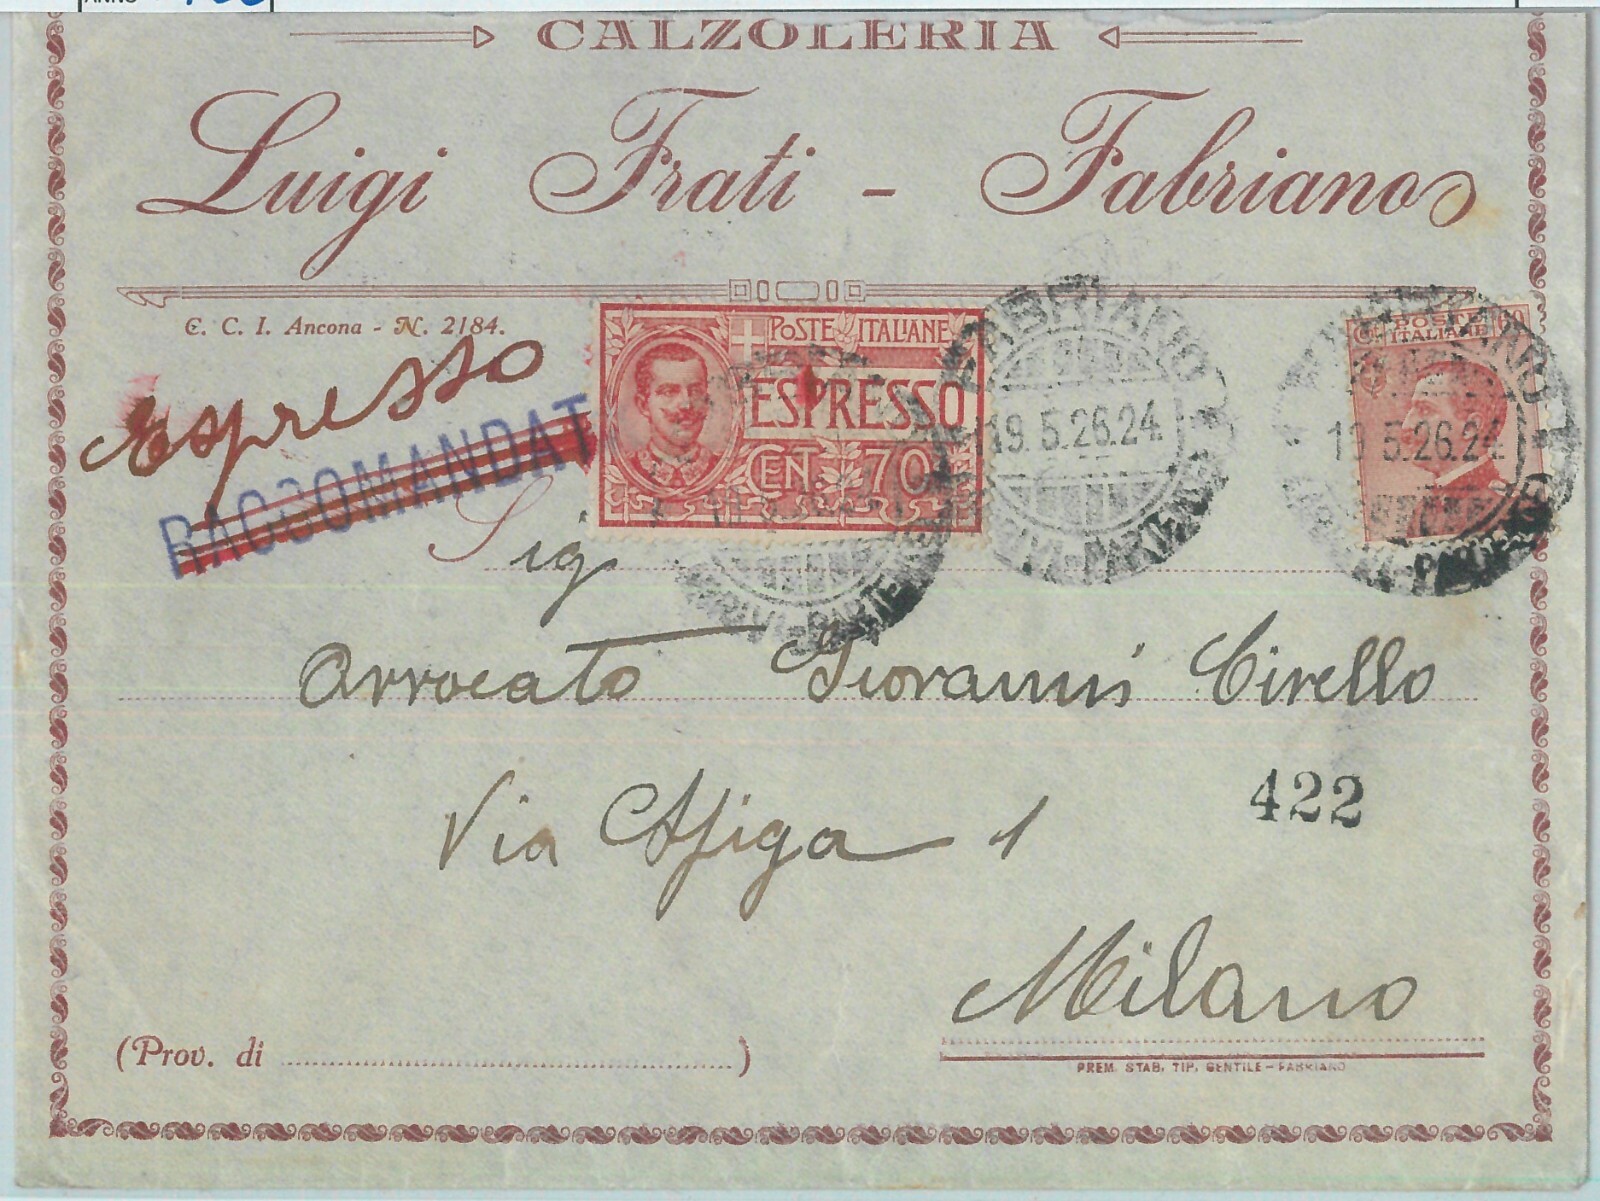 CALZOLERIA
Luigi Frati - Fabriano
E. C. I. Ancona - N. 2184.
Espresso
RACCOMANDAT
POSTE ITALIANE
ESPRESSO
CENT. 70
FABRIANO
19.5.26.24
ARRIVI-PARTENZE
POSTE ITALIANE
60
19.5.26.24
Sig
Avvocato Giovanni Cirello
Via Afiga 1
422
Milano
(Prov. di )
PREM. STAB. TIP. GENTILE - FABRIANO